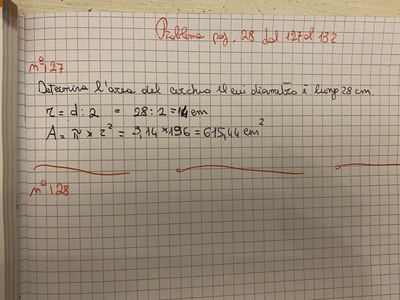 Problema pag. 28 dal 127 al 132
n° 127
Determina l'area del cerchio il cui diametro è lungo 28 cm.
r = d : 2 = 28 : 2 = 14 cm
A = π × r² = 3,14 × 196 = 615,44 cm²
n° 128